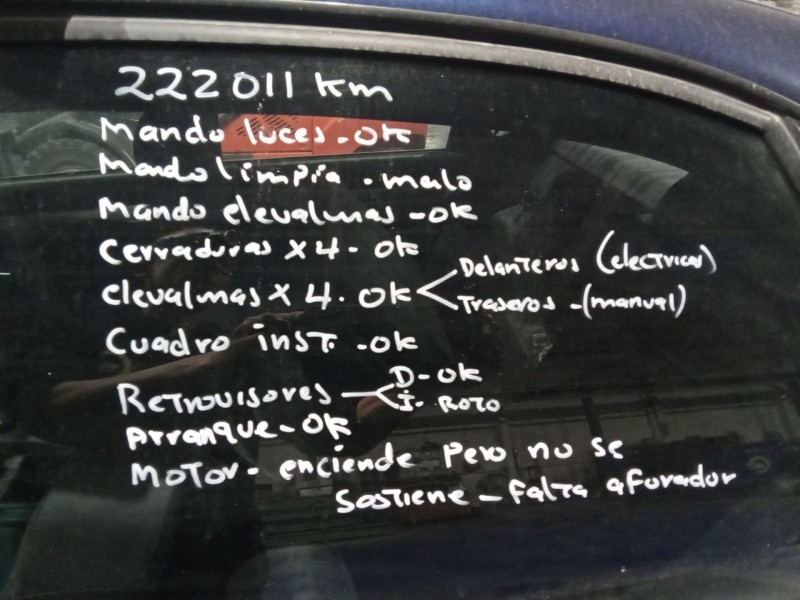 222011 km
Mando luces - OK
Mando limpia - malo
Mando elevalunas - OK
Cerraduras X 4 - OK
elevalunas X 4 - OK < Delanteros (electricos)
Traseros - (manual)
Cuadro inst. - OK
Retrovisores < D - OK
I - Roto
Arranque - OK
Motor - enciende pero no se
sostiene - falta aforador